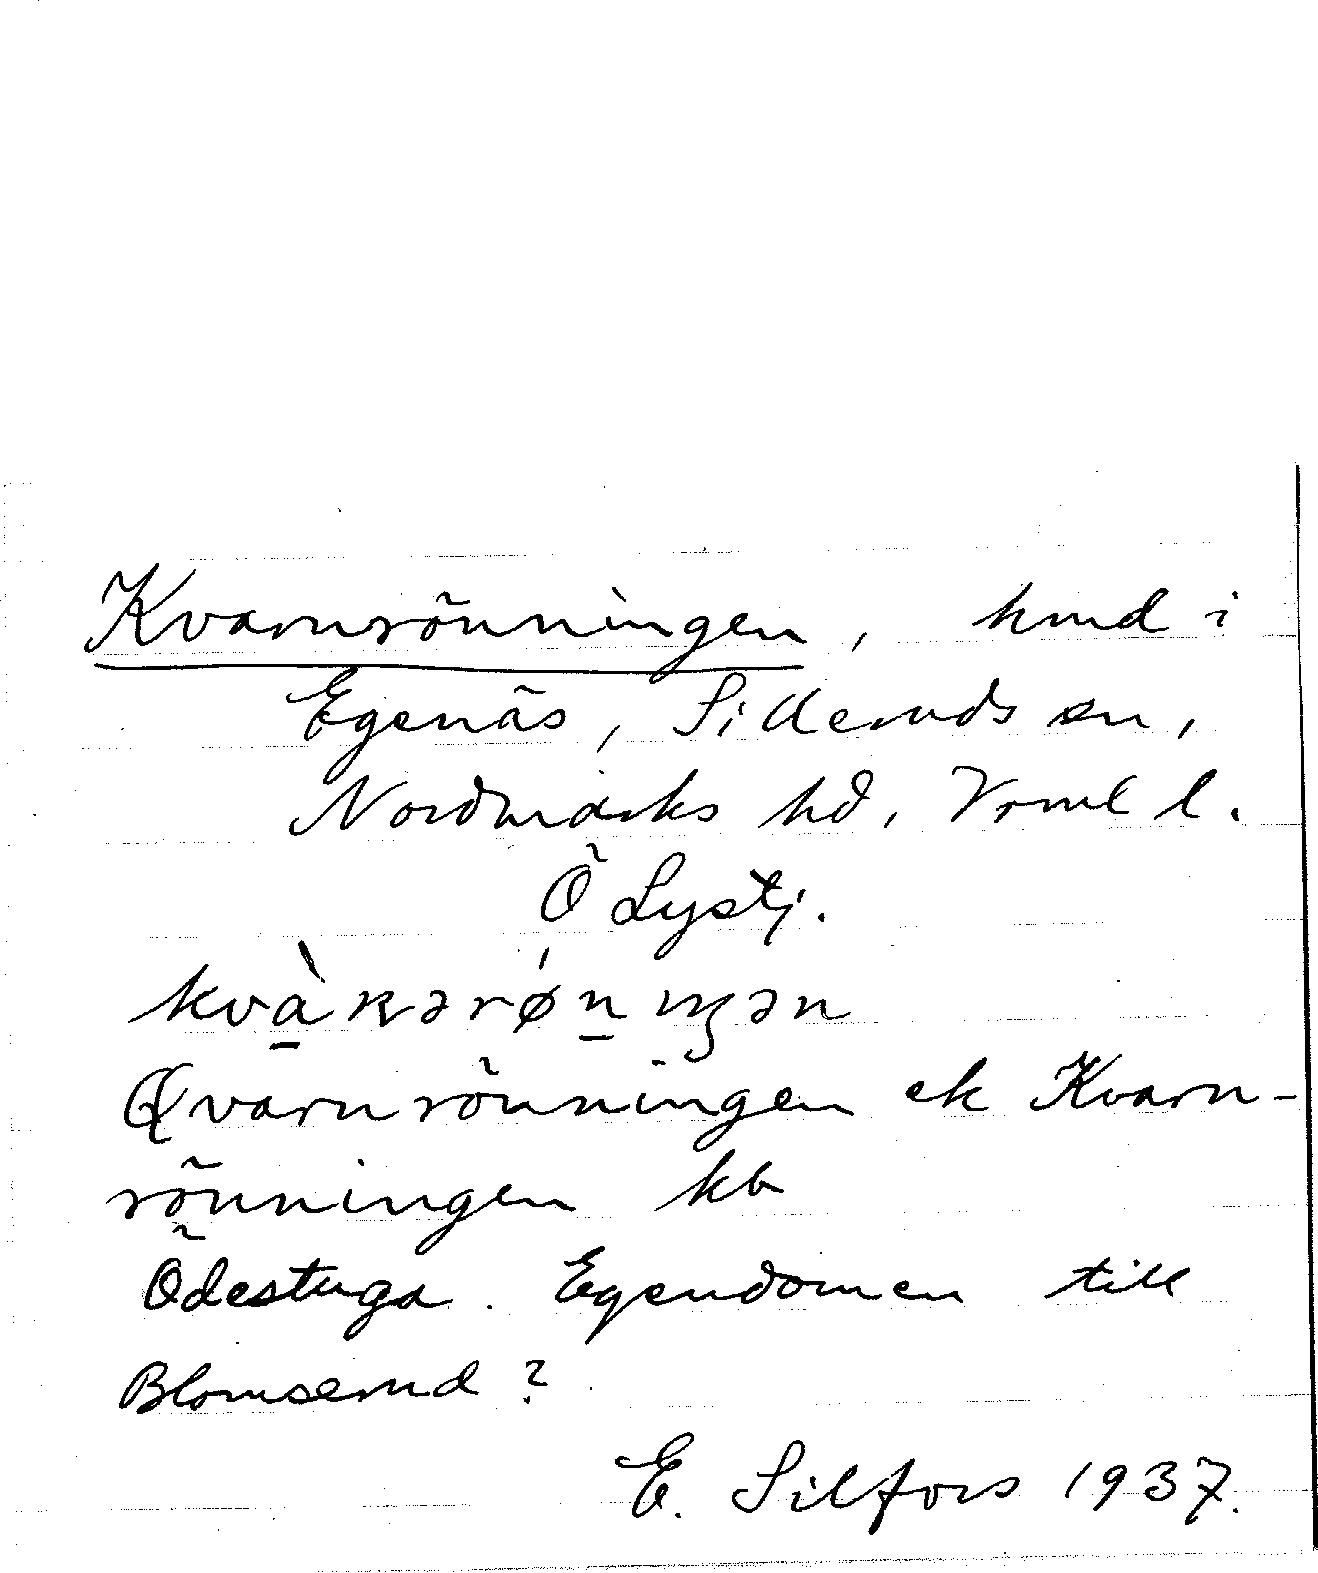 Kvarnrönningen, hmd i
Egenäs, Silleruds sn,
Nordmarks hd, Vrml l.
Ö Lystj.
kvàʀərǿnıŋən
Qvarnrönningen ek Kvarn-
rönningen kb
Ödestuga. Egendomen till
Blomserud?
E. Silfors 1937.